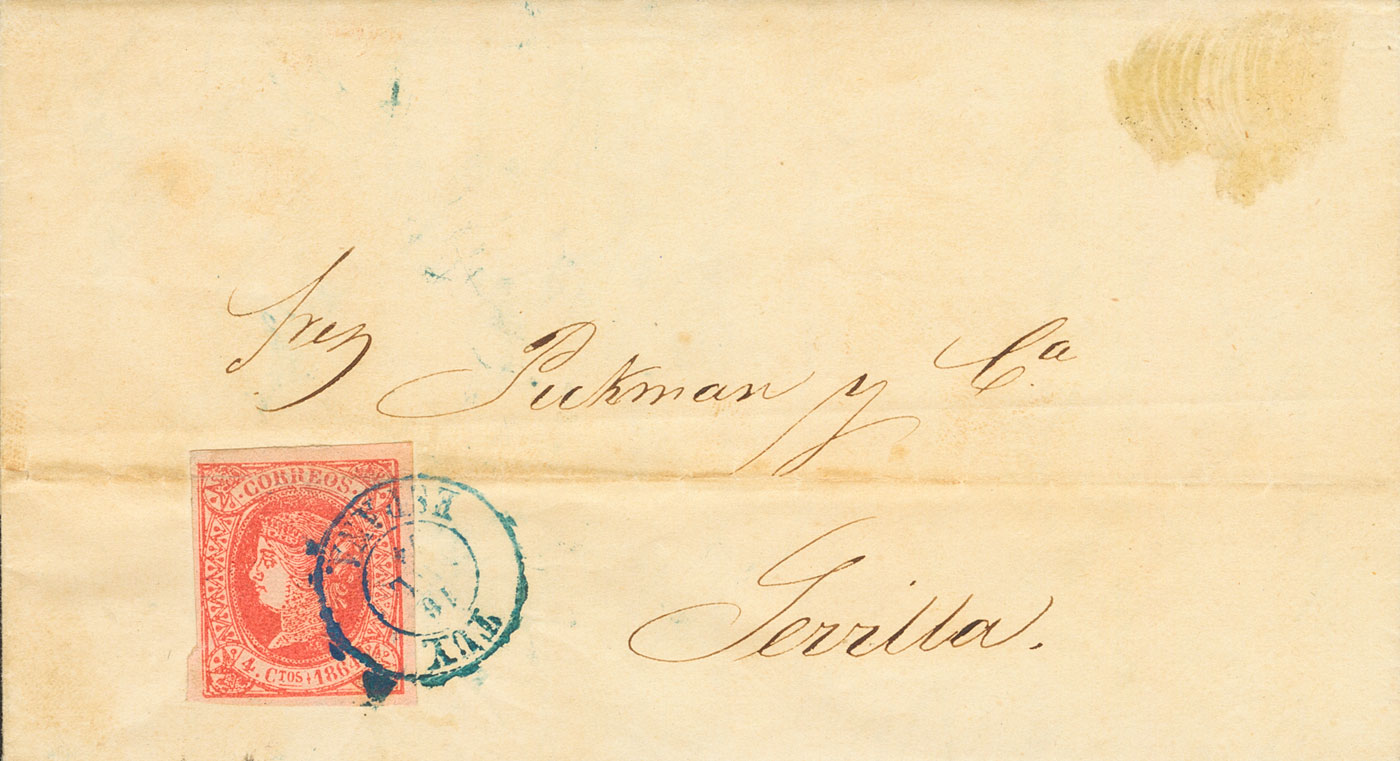 Srez Pickman y Cª
Sevilla.
·CORREOS·
4. CTOS 1864